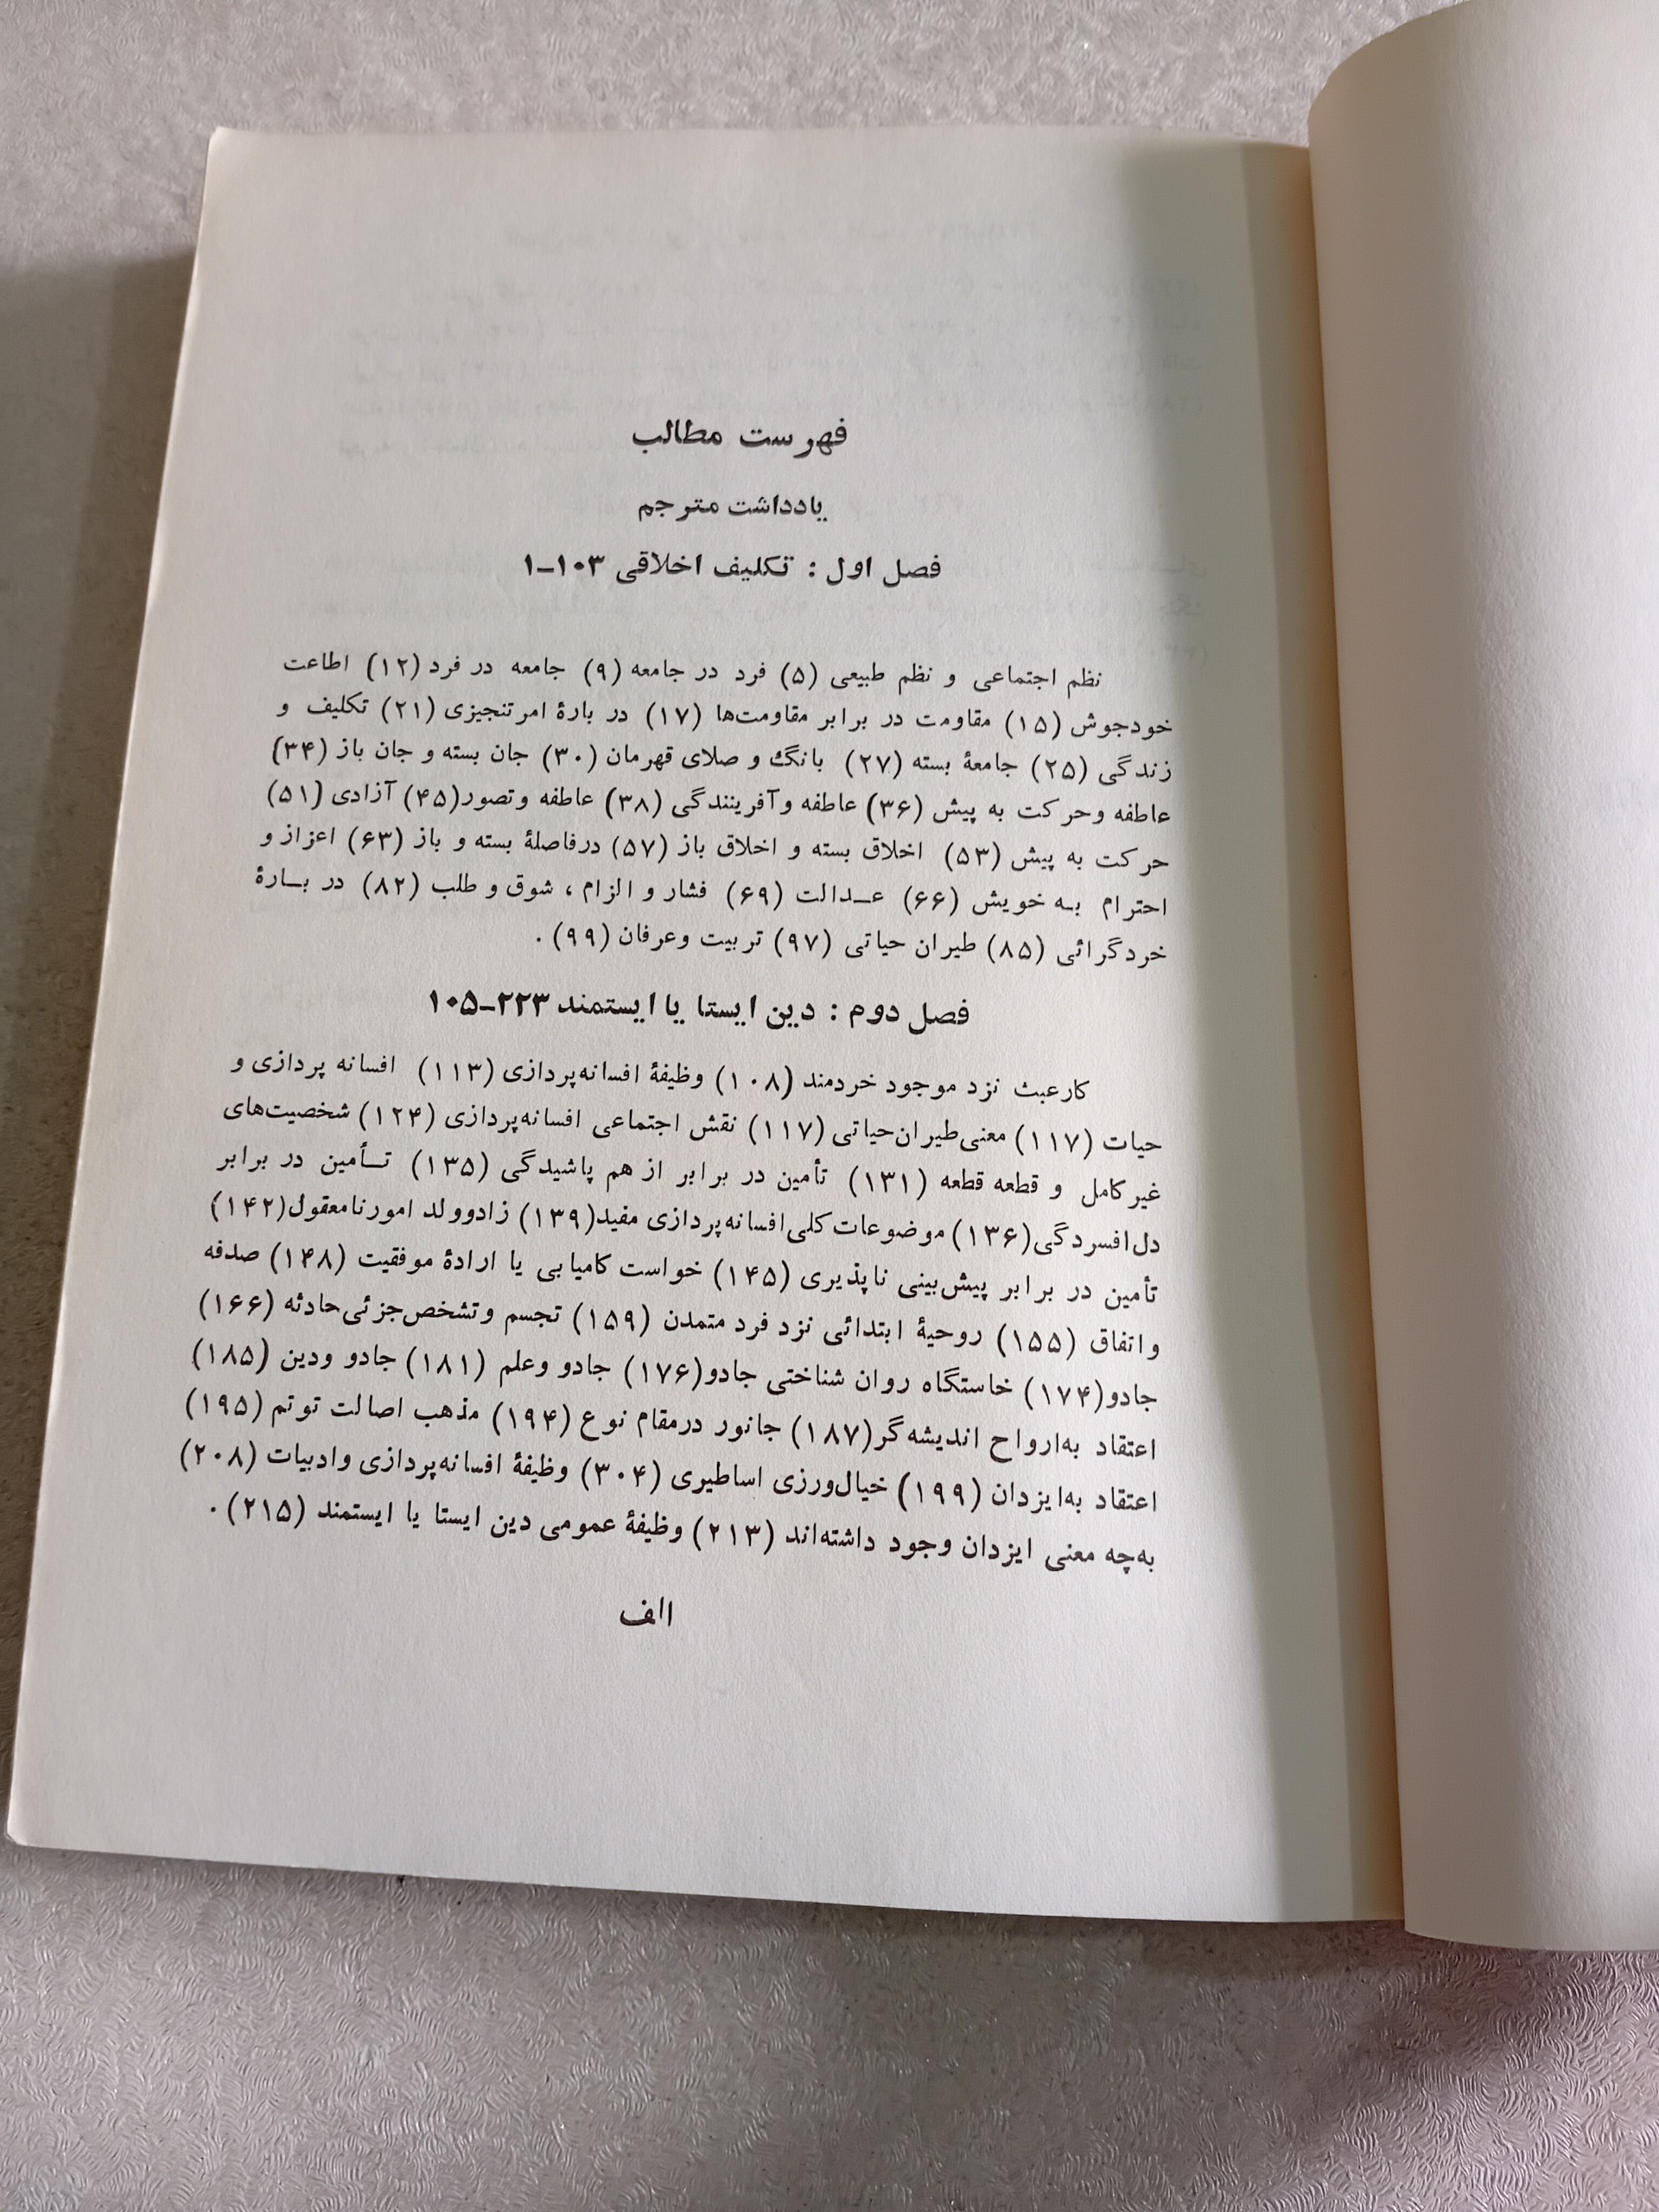 فهرست مطالب
یادداشت مترجم
فصل اول : تکلیف اخلاقی ۱۰۳-۱
نظم اجتماعی و نظم طبیعی (۵) فرد در جامعه (۹) جامعه در فرد (۱۲) اطاعت
خودجوش (۱۵) مقاومت در برابر مقاومت‌ها (۱۷) در بارهٔ امر تنجیزی (۲۱) تکلیف و
زندگی (۲۵) جامعهٔ بسته (۲۷) بانگ و صلای قهرمان (۳۰) جان بسته و جان باز (۳۴)
عاطفه و حرکت به پیش (۳۶) عاطفه و آفرینندگی (۳۸) عاطفه و تصور (۴۵) آزادی (۵۱)
حرکت به پیش (۵۳) اخلاق بسته و اخلاق باز (۵۷) درفاصلهٔ بسته و باز (۶۳) اعزاز و
احترام بـه خویش (۶۶) عـدالت (۶۹) فشار و الزام ، شوق و طلب (۸۲) در بـارهٔ
خردگرائی (۸۵) طیران حیاتی (۹۷) تربیت وعرفان (۹۹) .
فصل دوم : دین ایستا یا ایستمند ۲۲۳-۱۰۵
کارعبث نزد موجود خردمند (۱۰۸) وظیفهٔ افسانه‌پردازی (۱۱۳) افسانه پردازی و
حیات (۱۱۷) معنی طیران‌حیاتی (۱۱۷) نقش اجتماعی افسانه‌پردازی (۱۲۴) شخصیت‌های
غیرکامل و قطعه قطعه (۱۳۱) تأمین در برابر از هم پاشیدگی (۱۳۵) تـأمین در برابر
دل‌افسردگی (۱۳۶) موضوعات کلی افسانه‌پردازی مفید (۱۳۹) زادوولد امورنامعقول (۱۴۲)
تأمین در برابر پیش‌بینی ناپذیری (۱۴۵) خواست کامیابی یا ارادهٔ موفقیت (۱۴۸) صدفه
واتفاق (۱۵۵) روحیهٔ ابتدائی نزد فرد متمدن (۱۵۹) تجسم وتشخص‌جزئی‌حادثه (۱۶۶)
جادو (۱۷۴) خاستگاه روان شناختی جادو (۱۷۶) جادو وعلم (۱۸۱) جادو ودین (۱۸۵)
اعتقاد به‌ارواح اندیشه‌گر (۱۸۷) جانور درمقام نوع (۱۹۴) مذهب اصالت توتم (۱۹۵)
اعتقاد به‌ایزدان (۱۹۹) خیال‌ورزی اساطیری (۳۰۴) وظیفهٔ افسانه‌پردازی وادبیات (۲۰۸)
به‌چه معنی ایزدان وجود داشته‌اند (۲۱۳) وظیفهٔ عمومی دین ایستا یا ایستمند (۲۱۵) .
الف